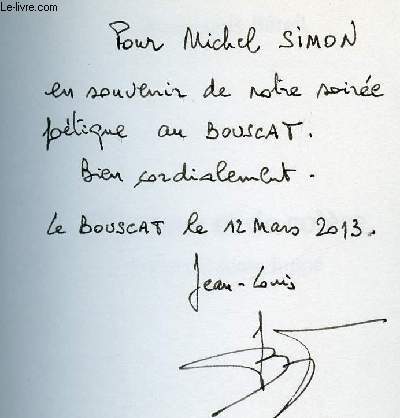 Le-livre.com
Pour Michel SIMON
en souvenir de notre soirée
poétique au BOUSCAT.
Bien cordialement.
Le BOUSCAT le 12 Mars 2013.
Jean-Louis